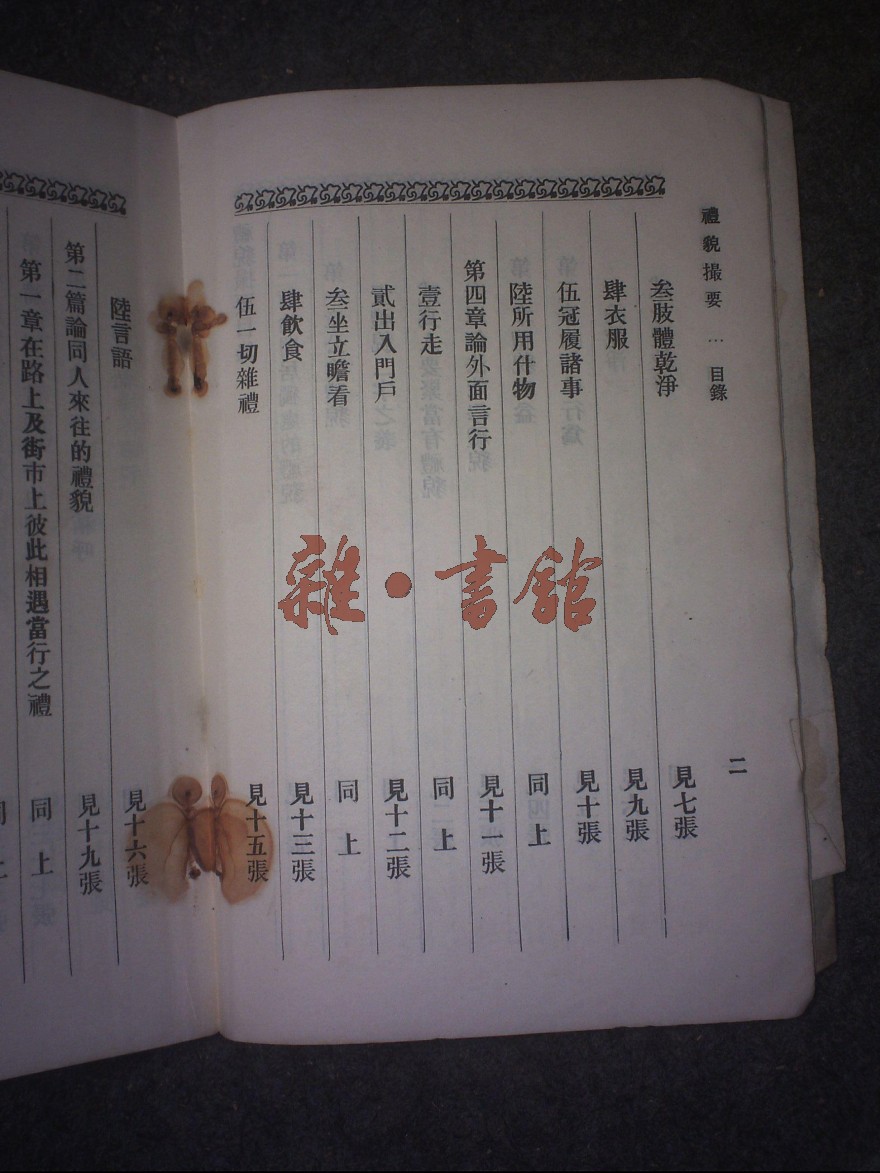 禮貌撮要 … 目錄
二
叁肢體乾淨 見七張
肆衣服 見九張
伍冠履諸事 見十張
陸所用什物 同上
第四章論外面言行 見十一張
壹行走 同上
貳出入門戶 見十二張
叁坐立瞻看 同上
肆飲食 見十三張
伍一切雜禮 見十五張
陸言語 見十六張
第二篇論同人來往的禮貌 見十九張
第一章在路上及街市上彼此相遇當行之禮 同上
同上
雜·書館